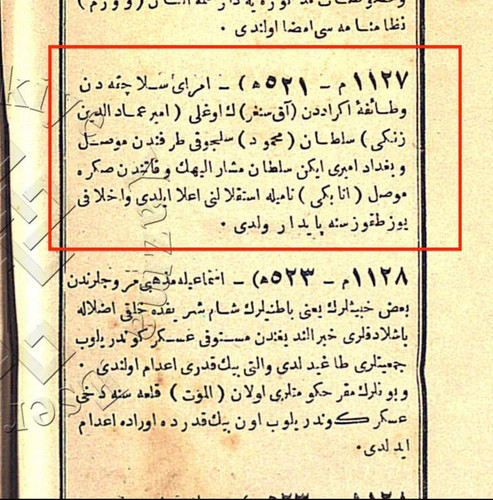 نظامنامه سی امضا اولندی ٠
١١٢٧ م – ٥٢١ ه) – امرای سلاجقه دن
وطائفهٔ اکراددن (آق سنقر) ك اوغلی (امیر عماد الدین
زنکی) سلطان (محمود) سلجوقی طرفندن موصل
وبغداد امیری ایکن سلطان مشار الیهك وفاتندن صکره
موصل (اتابکی) نامیله استقلالنی اعلا ایلدی واخلافی
یوز طقوز سنه پایدار ولدی ٠
١١٢٨ م – ٥٢٣ ه) – اسماعیلیه مذهبی مروجلرندن
بعض خبیثلرك یعنی باطنیلرك شام شهریقده خلقی اضلاله
باشلادقلری خبر الندیغندن مستوفی عسکر کوندریلوب
جمعیتلری طاغیدلدی والتی بیك قدری اعدام اولندی ٠
وبونلرك مقر حکومتلری اولان (الموت) قلعه سنه دخی
عسکر کوندریلوب اون بیك قدرده اوراده اعدام
ایدلدی.